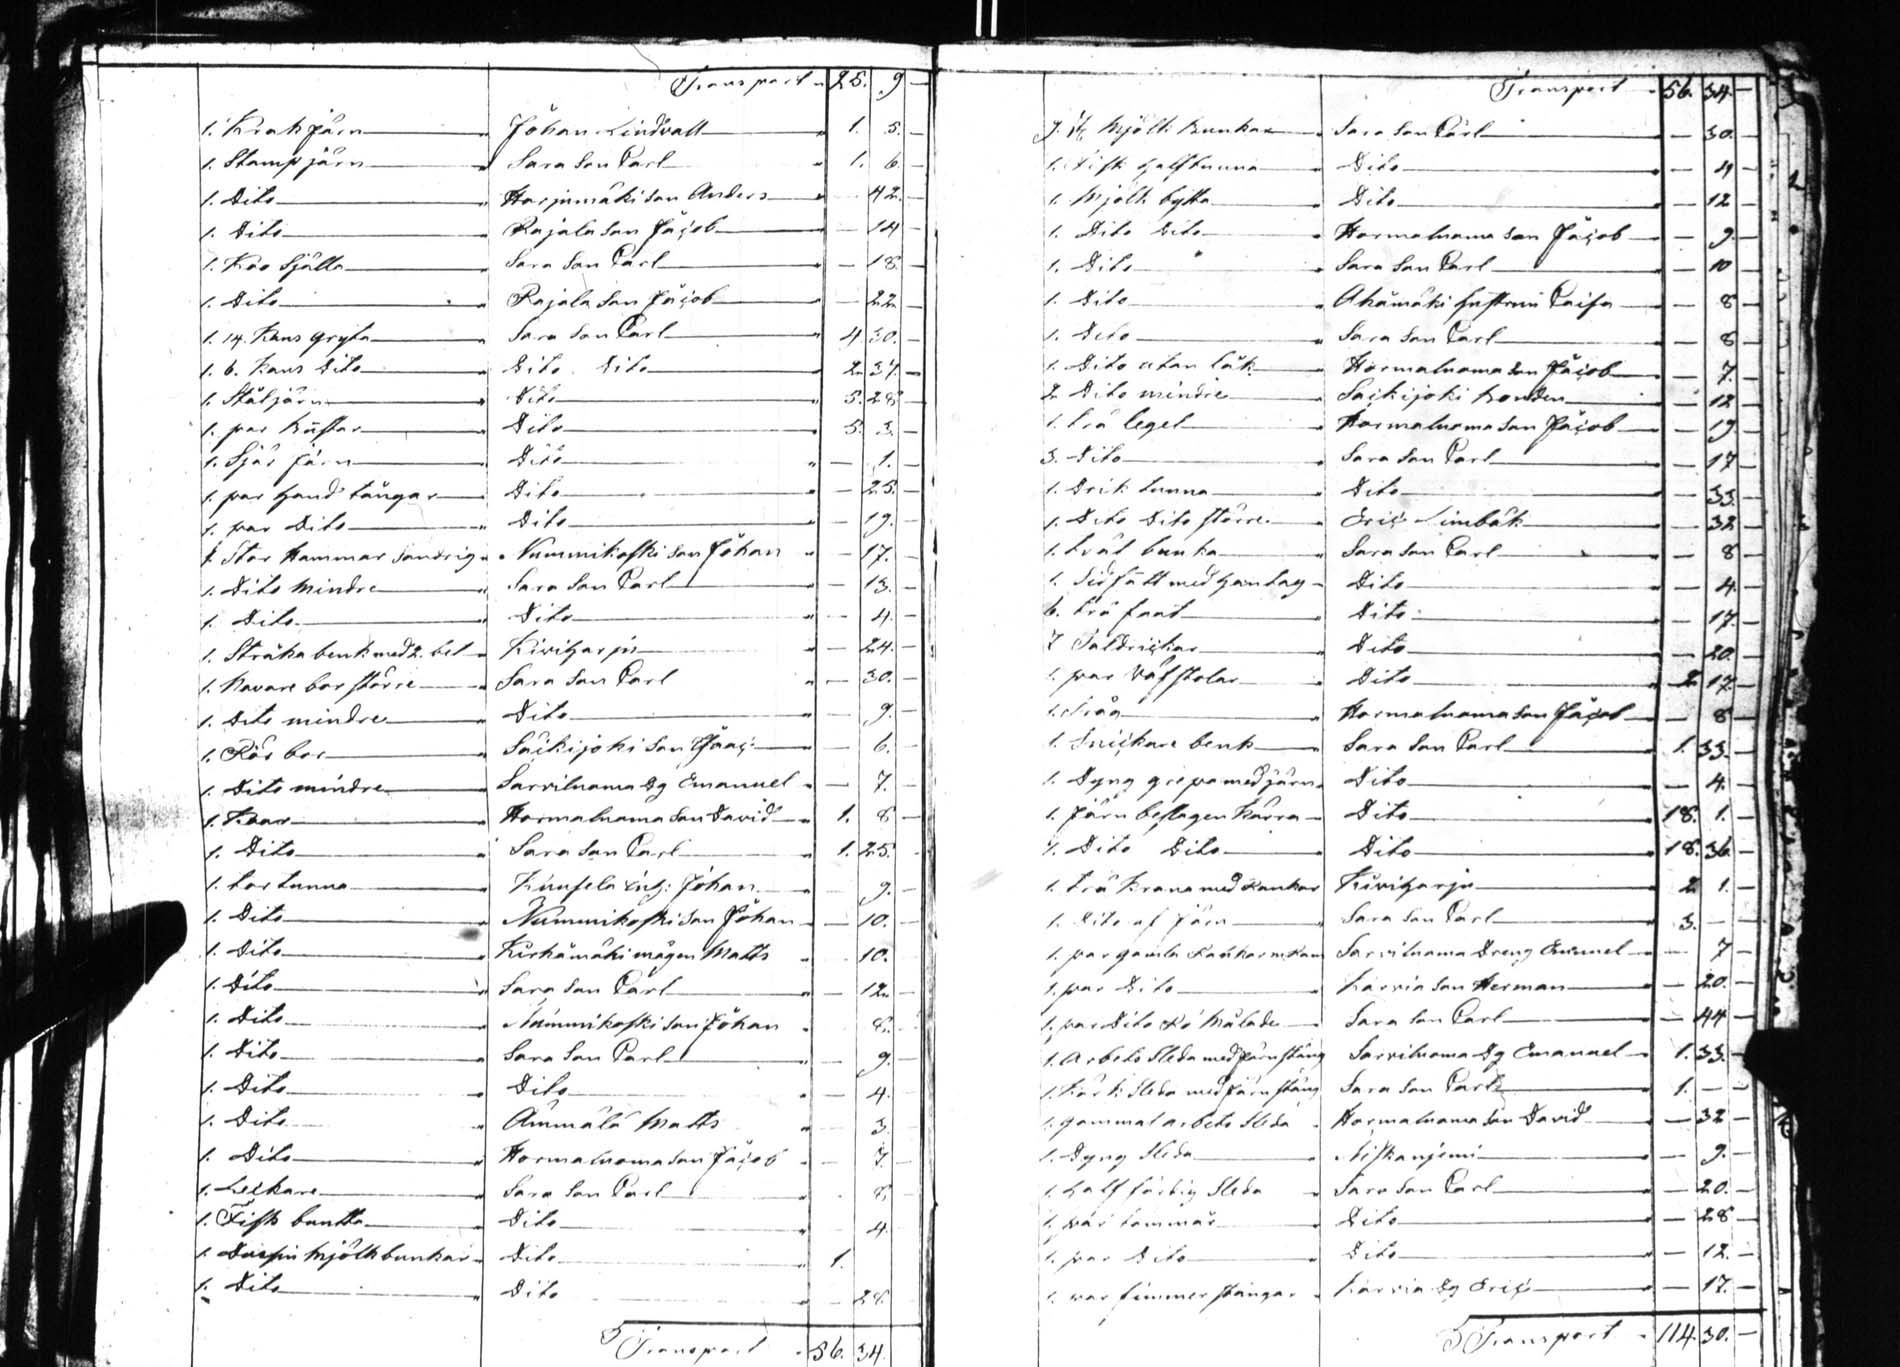 Transport 25. 9
1. Krak järn Johan Lindvall 1. 5.
1. Stamp järn Sara Son Carl 1. 6.
1. Dito Harjumäki Son Anders 42.
1. Dito Rajala Son Jacob — 14
1. Koo Själla Sara Son Carl — 18.
1. Dito Rajala Son Jacob — 22
1. 14. Kans gryta Sara Son Carl 4 30.
1. 6. Kans Dito Dito Dito 2. 37.
1. Ståtjärn Dito 5. 28
1. par Küstar Dito 5. 3.
1. Sjär järn Dito — 1.
1. par Hand tångar Dito — 25.
1. par Dito Dito — 19.
1. Stor Hammar Nummikoski Son Johan — 17.
1. Dito Mindre Sara Son Carl — 13.
1. Dito Dito — 4.
1. Stråka benk med 2. bel Kiviharju — 24.
1. Navare bor större Sara Son Carl — 30.
1. Dito mindre Dito — 9.
1. Rör bor Säikijoki Son Isaac — 6.
1. Dito mindre Sarviluoma Dg Emanuel — 7.
1. Hormaluoma Son David 1. 8
1. Dito Sara Son Carl 1. 25.
1. tor tunna Johan 9.
1. Dito Nummikoski Son Johan — 10.
1. Dito Kirkämäki mågen Matts 10.
1. Dito Sara Son Carl — 12.
1. Dito Nummikoski Son Johan 8.
1. Dito Sara Son Carl — 9.
1. Dito Dito — 4.
1. Dito Ämmälä Matts 3.
1. Dito Hormaluoma Son Jacob — 7.
1. Leikare Sara Son Carl 8
1. Fisk buntta Dito 4.
1. Dussin Mjölkbunkar Dito 1.
1. Dito Dito — 28.
Transport 56. 34.
Transport 56. 34.
Mjölk Bunkar Sara Son Carl — 30.
1. Fisk Halftunna Dito — 4
1. Mjölk bytta Dito — 12
1. Dito Dito Hormaluoma Son Jacob — 9.
1. Dito Sara Son Carl — 10
1. Dito Ahämäki Hustrun Caisa — 8
1. Dito Sara Son Carl — 8
1. Dito utan låk Hormaluoma Son Jacob — 7.
2. Dito mindre Säikijoki Bonden — 12
1. trä legel Hormaluoma Son Jacob — 19
3. Dito Sara Son Carl — 17
1. Drik tunna Dito — 33.
1. Dito Dito större Eric Limbäk — 32
1. tvät bunka Sara Son Carl — 8
1. med Hantag Dito — 4.
6. trä faat Dito — 17.
7 Täldrickar Dito — 20.
1. par Väfstolar Dito 2 17.
1. tråg Hormaluoma Son Jacob — 8
1. Snickare benk Sara Son Carl 1. 33.
1. Dyng grepa med järn Dito — 4.
1. Järn beslagen Kärra Dito 18. 1.
1. Dito Dito Dito 18. 36.
1. trä Krana med Kankar Kiviharju 2 1.
1. Dito af Järn Sara Son Carl 3. —
1. par gamla Kankar Sarviluoma Dreng Emanuel — 7
1. par Dito Karvia Son Herman — 20.
1. par Dito Rö Målade Sara Son Carl — 44
1. Arbets Släda med Järn stäng Sarviluoma Dg Emanuel 1. 33.
1. Släda med Järn stäng Sara Son Carl 1. —
1. gammal arbets Släda Hormaluoma Son David — 32
1. Dyng Släda Niskanjemi — 9.
1. Half färdig Släda Sara Son Carl — 20.
1. par tommar Dito — 28
1. par Dito Dito — 12.
1. par timmer stångar Karvia Dg Eric — 17.
Transport 114. 30.